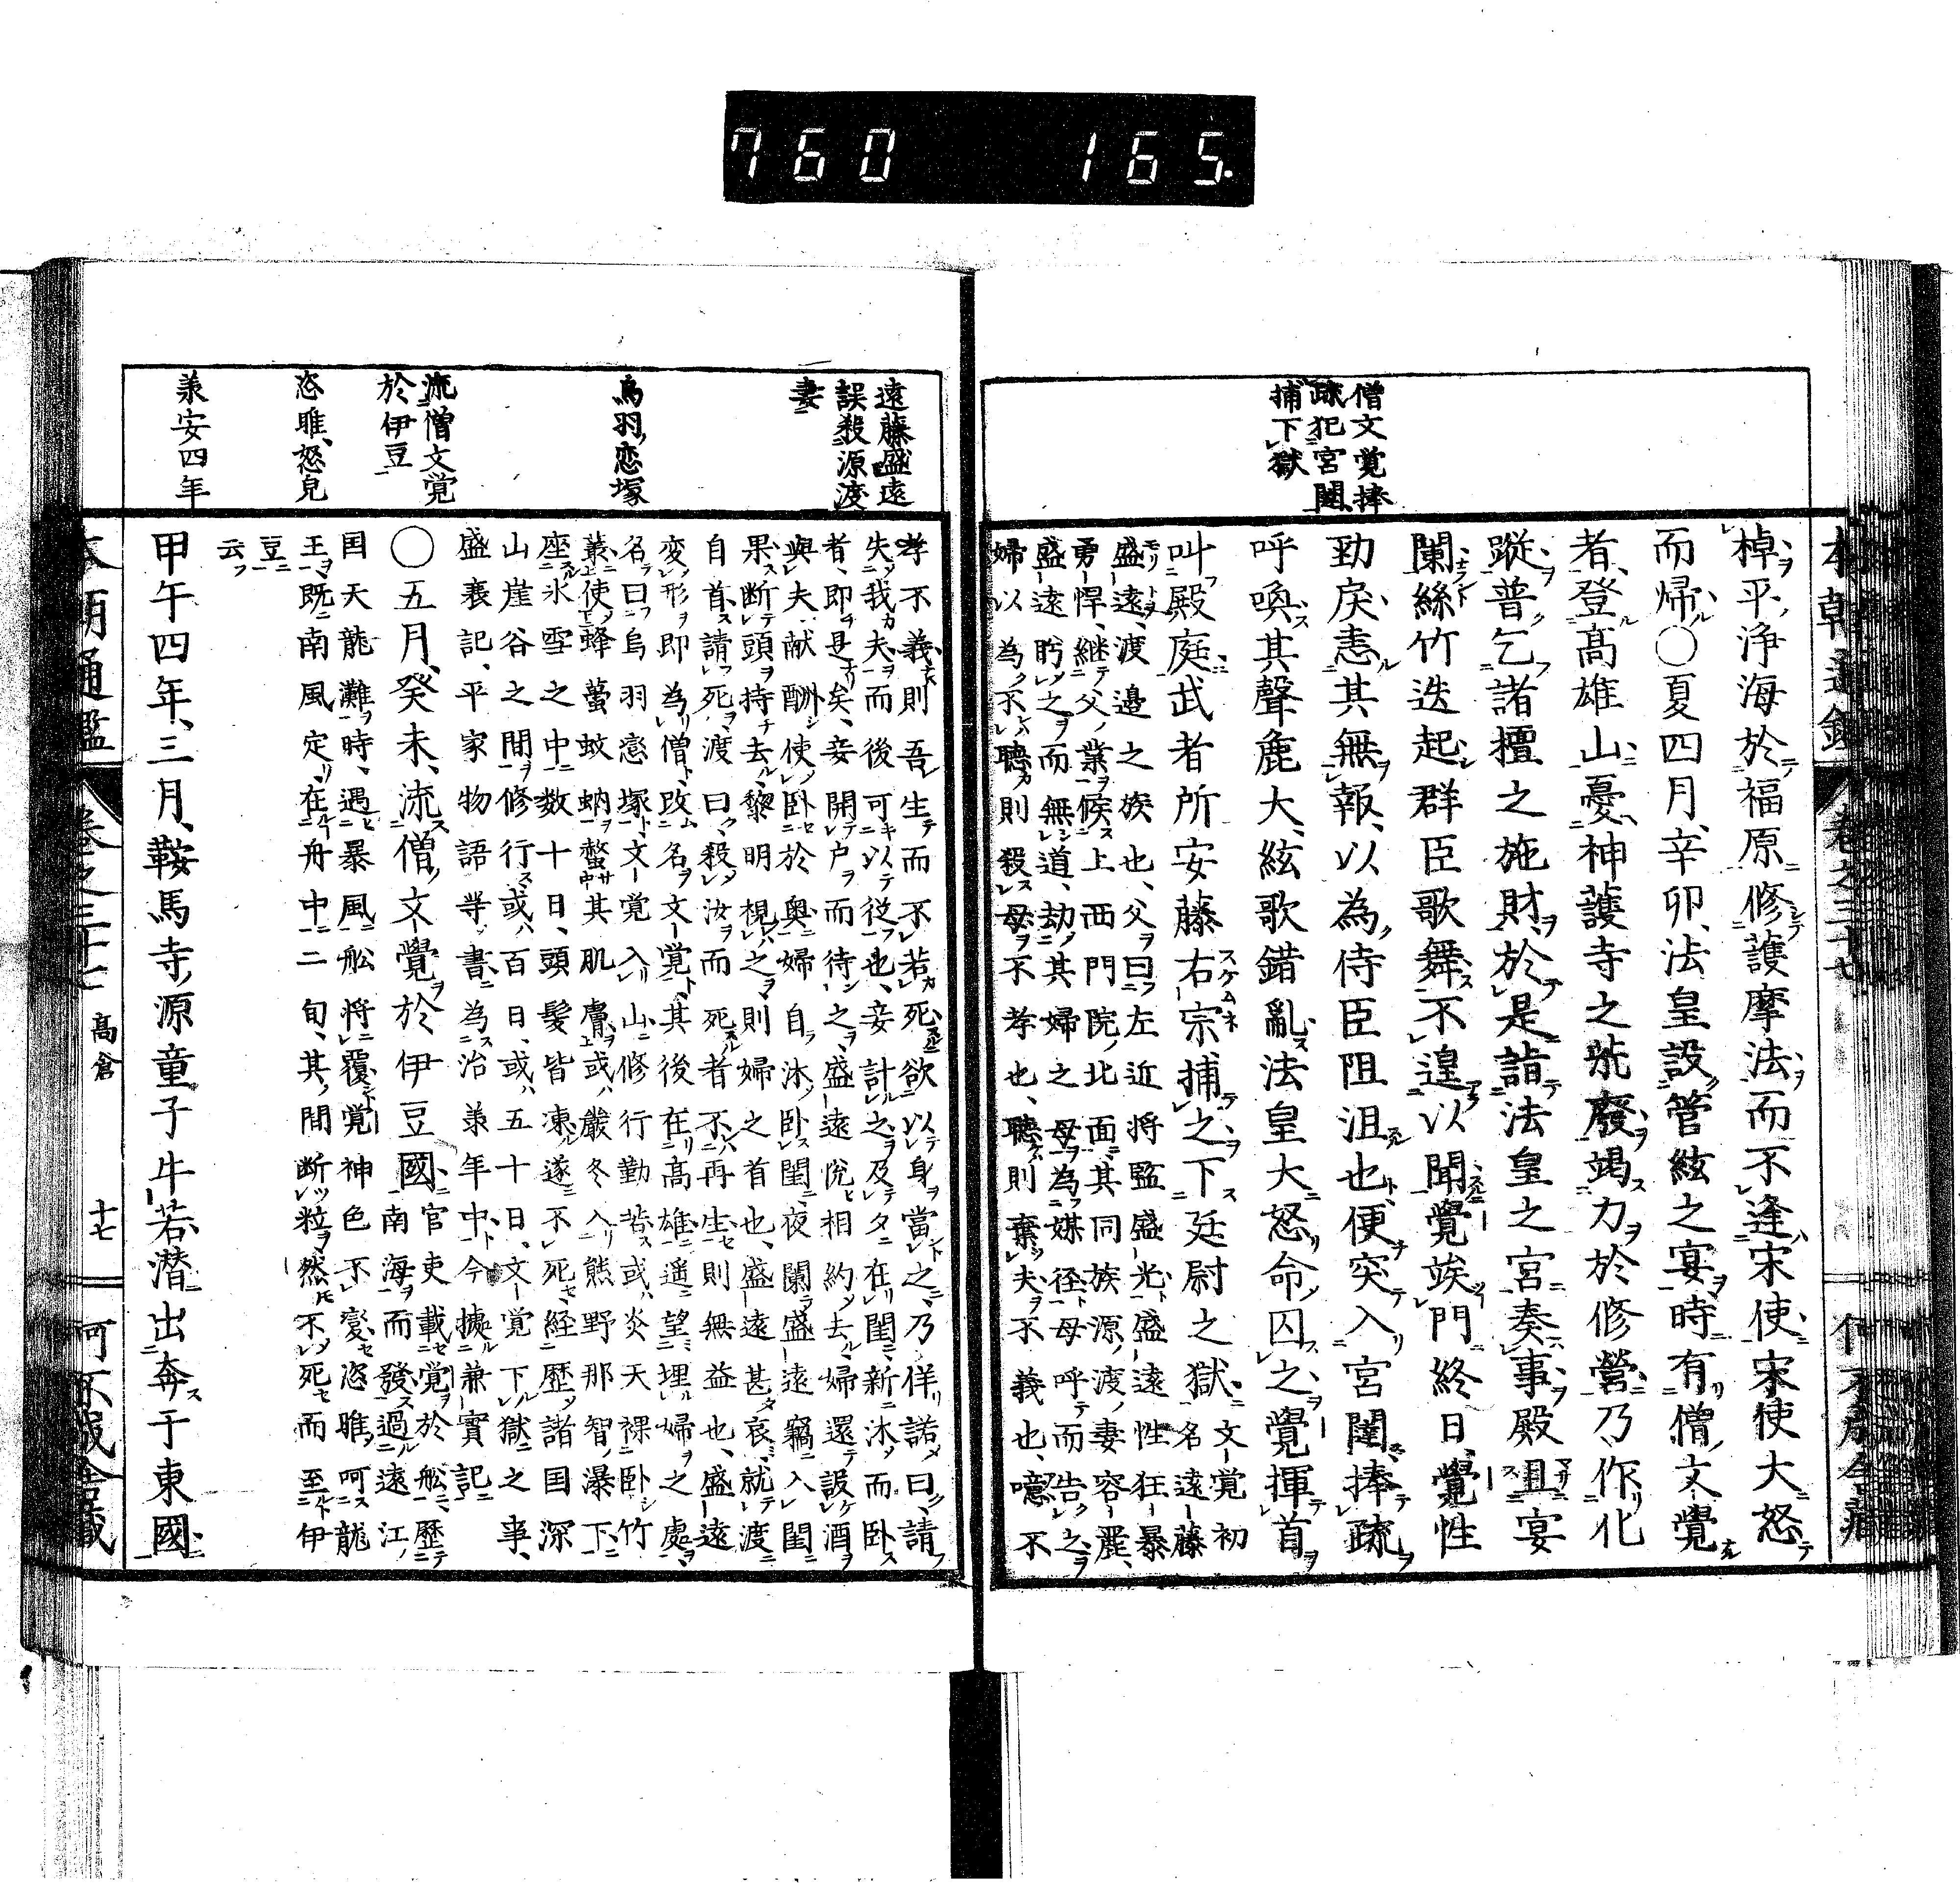 760 165.
僧文覚捧
疏犯宮闥
捕下獄
棹平浄海於福原修護摩法而不逢宋使宋使大怒
而帰〇夏四月、辛卯、法皇設管絃之宴時有僧文覺
者、登高雄山憂神護寺之荒廢竭力於修營乃作化
蹤普乞諸檀之施財於是詣法皇之宮奏事殿且宴
闌絲竹迭起群臣歌舞不遑以聞覺竢門終日、覺性
勁戻恚其無報、以為侍臣阻沮也、便突入宮闥捧疏
呼喚其聲麁大、絃歌錯亂法皇大怒命囚之覺揮首
叫殿庭武者所安藤右宗捕之下廷尉之獄文覚初名遠藤
盛遠、渡邉之族也、父曰左近将監盛光盛遠性狂暴
勇悍、継父業候上西門院北面其同族源渡妻容麗、
盛遠眄之而無道、劫其婦之母為媒径母呼而告之
婦以為不聴則殺母不孝也、聴則棄夫不義也、噫不
遠藤盛遠
誤殺源渡
妻
鳥羽恋塚
流僧文覚
於伊豆
恣睢、怒皃
羕安四年
孝不義則吾生而不若死欲以身當之、乃佯諾曰、請
失我夫而後可以従也、妾計之及夕在閨新沐而卧
者、即是矣、妾開戸而待之、盛遠恱相約去、婦還設酒
與夫献酬使卧於奥婦自沐卧閨夜闌盛遠竊入閨
果断頭持去、黎明視之則婦之首也、盛遠甚哀、就渡
自首請死渡曰、殺汝而死者不再生則無益也、盛遠
変形即為僧、改名文覚、其後在高雄遥望埋婦之處
名曰烏羽恋塚文覚入山修行勤苦或炎天裸卧竹
叢使蜂蚤蚊蚋螫其肌膚或厳冬入熊野那智瀑下
座氷雪之中数十日、頭髪皆凍遂不死経歴諸国深
山崖谷之間修行或百日或五十日、文覚下獄之事、
盛衰記、平家物語等書為治羕年中今據兼實記
〇五月、癸未、流僧文覺於伊豆國官吏載覚於舩歴南海而發過遠江、
国天龍灘時、遇暴風舩将覆覚神色不変恣睢呵龍
王既南風定、在舟中二旬、其間断粒然不死而至伊
豆
云
甲午四年、三月、鞍馬寺源童子牛若潜出奔于東國
本朝通鑑 卷之三十七 高倉 十七